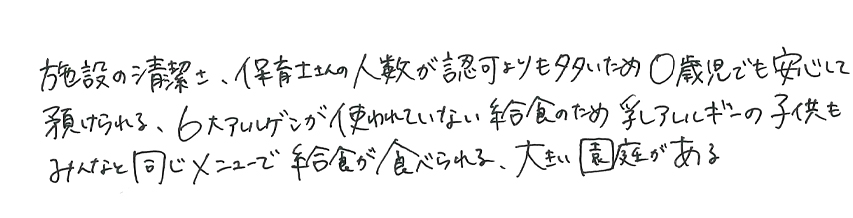 施設の清潔さ、保育士さんの人数が認可よりも多いため〇歳児でも安心して
預けられる、6大アレルゲンが使われていない給食のため乳アレルギーの子供も
みんなと同じメニューで給食が食べられる、大きい園庭がある